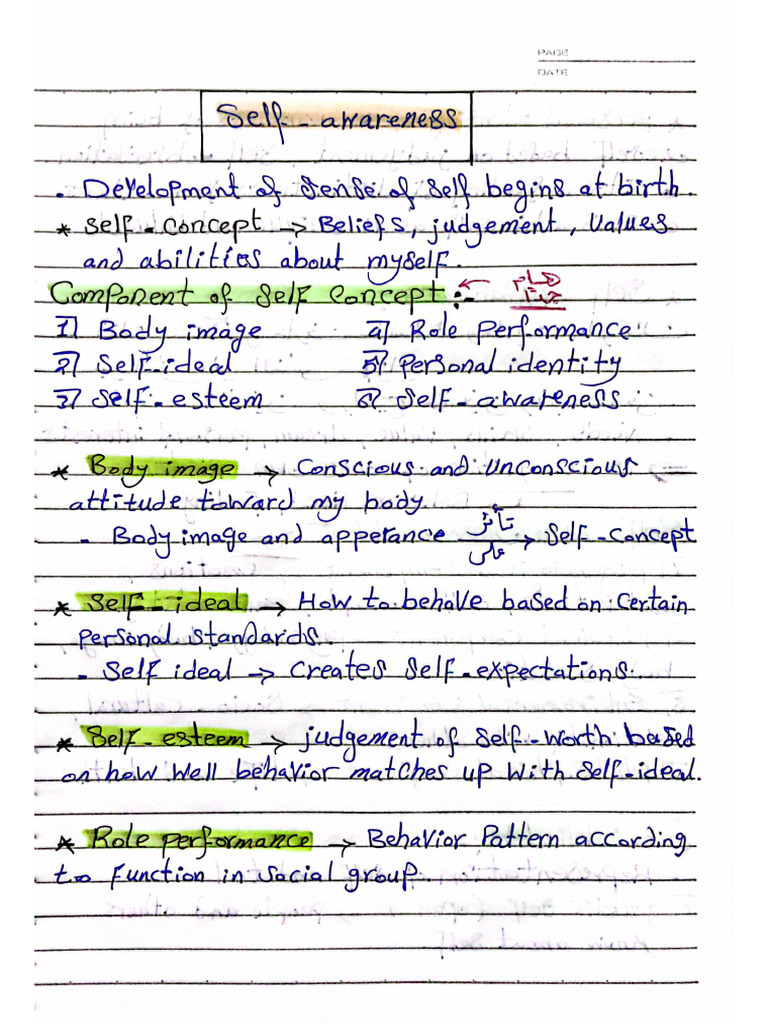 PAGE
DATE
Self-awareness
. Development of sense of self begins at birth.
* Self-concept → Beliefs, judgement, values
and abilities about myself.
Component of self concept :- ← هام
جدا
1) Body image 4) Role performance
2) Self-ideal 5) Personal identity
3) Self-esteem 6) Self-awareness
* Body image → Conscious and unconscious
attitude toward my body.
- Body image and apperance تأثر على → self-concept
* Self-ideal → How to behave based on certain
personal standards.
- Self ideal → creates self-expectations.
* Self-esteem → judgement of self-worth based
on how well behavior matches up with self-ideal.
* Role performance → Behavior Pattern according
to function in social group.